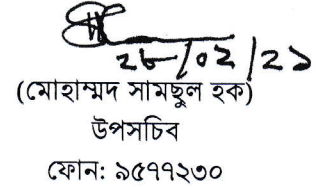 ২৮/০২/২১
(মোহাম্মদ সামছুল হক)
উপসচিব
ফোন: ৯৫৭৭২৩০